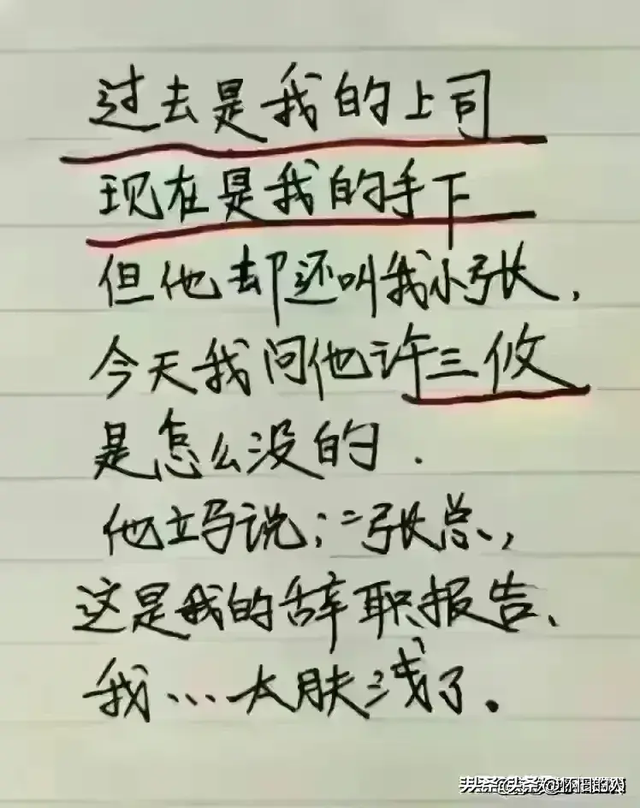 过去是我的上司
现在是我的手下
但他却还叫我小张,
今天我问他许三攸
是怎么没的.
他立马说:“张总,
这是我的辞职报告、
我…太肤浅了。